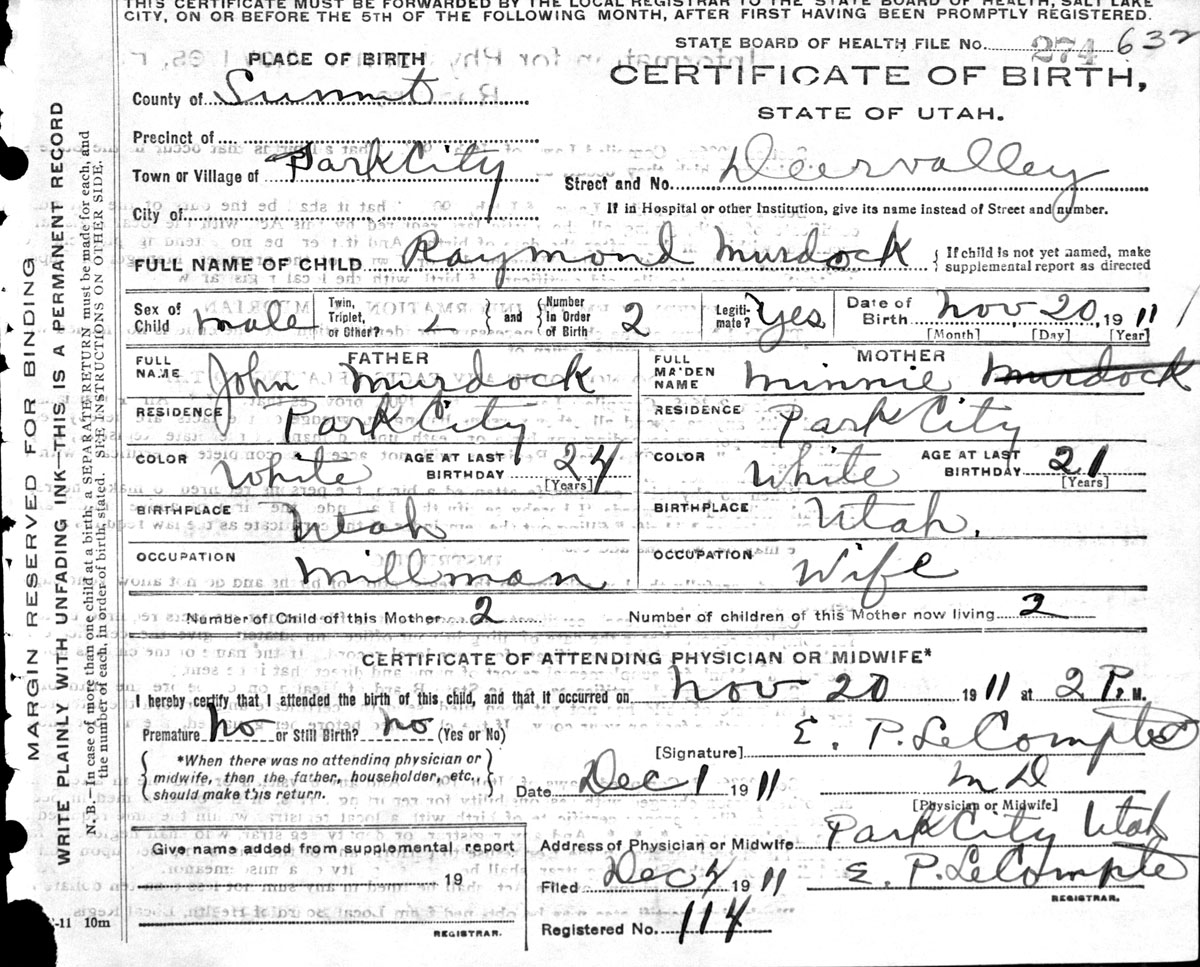 THIS CERTIFICATE MUST BE FORWARDED BY THE LOCAL REGISTRAR TO THE STATE BOARD OF HEALTH, SALT LAKE
CITY, ON OR BEFORE THE 5TH OF THE FOLLOWING MONTH, AFTER FIRST HAVING BEEN PROMPTLY REGISTERED.
STATE BOARD OF HEALTH FILE NO. 274 632
PLACE OF BIRTH
CERTIFICATE OF BIRTH,
County of Summit
STATE OF UTAH.
Precinct of
Town or Village of Park City
Street and No. Deervalley
City of
If in Hospital or other Institution, give its name instead of Street and number.
FULL NAME OF CHILD Raymond Murdock { If child is not yet named, make supplemental report as directed
Sex of Child male Twin, Triplet, or Other? } and { Number In Order of Birth 2 Legiti-mate? Yes Date of Birth Nov 20, 1911
[Month] [Day] [Year]
FATHER MOTHER
FULL NAME John Murdock FULL MA'DEN NAME Minnie Murdock
RESIDENCE Park City RESIDENCE Park City
COLOR White AGE AT LAST BIRTHDAY 24 [Years] COLOR White AGE AT LAST BIRTHDAY 21 [Years]
BIRTHPLACE Utah BIRTHPLACE Utah.
OCCUPATION Millman OCCUPATION Wife
Number of Child of this Mother 2 Number of children of this Mother now living 2
CERTIFICATE OF ATTENDING PHYSICIAN OR MIDWIFE*
I hereby certify that I attended the birth of this child, and that it occurred on Nov 20 1911 at 2 P. M.
Premature No or Still Birth? No (Yes or No)
[Signature] E. P. LeCompte
*When there was no attending physician or
midwife, then the father, householder, etc.,
should make this return.
Date Dec 1 1911 M D
[Physician or Midwife]
Address of Physician or Midwife Park City Utah
Give name added from supplemental report
19
REGISTRAR.
Filed Dec 4 1911 E. P. LeCompte
REGISTRAR.
Registered No. 114
-11 10m
MARGIN RESERVED FOR BINDING
WRITE PLAINLY WITH UNFADING INK—THIS IS A PERMANENT RECORD
N. B.—In case of more than one child at a birth, a SEPARATE RETURN must be made for each, and
the number of each, in order of birth, stated. SEE INSTRUCTIONS ON OTHER SIDE.